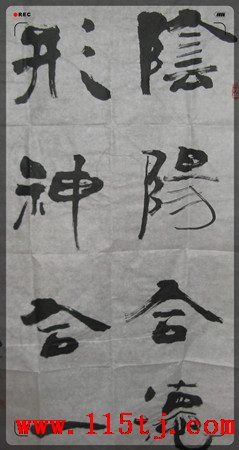 REC
陰陽合德
形神合一
www.115tj.com